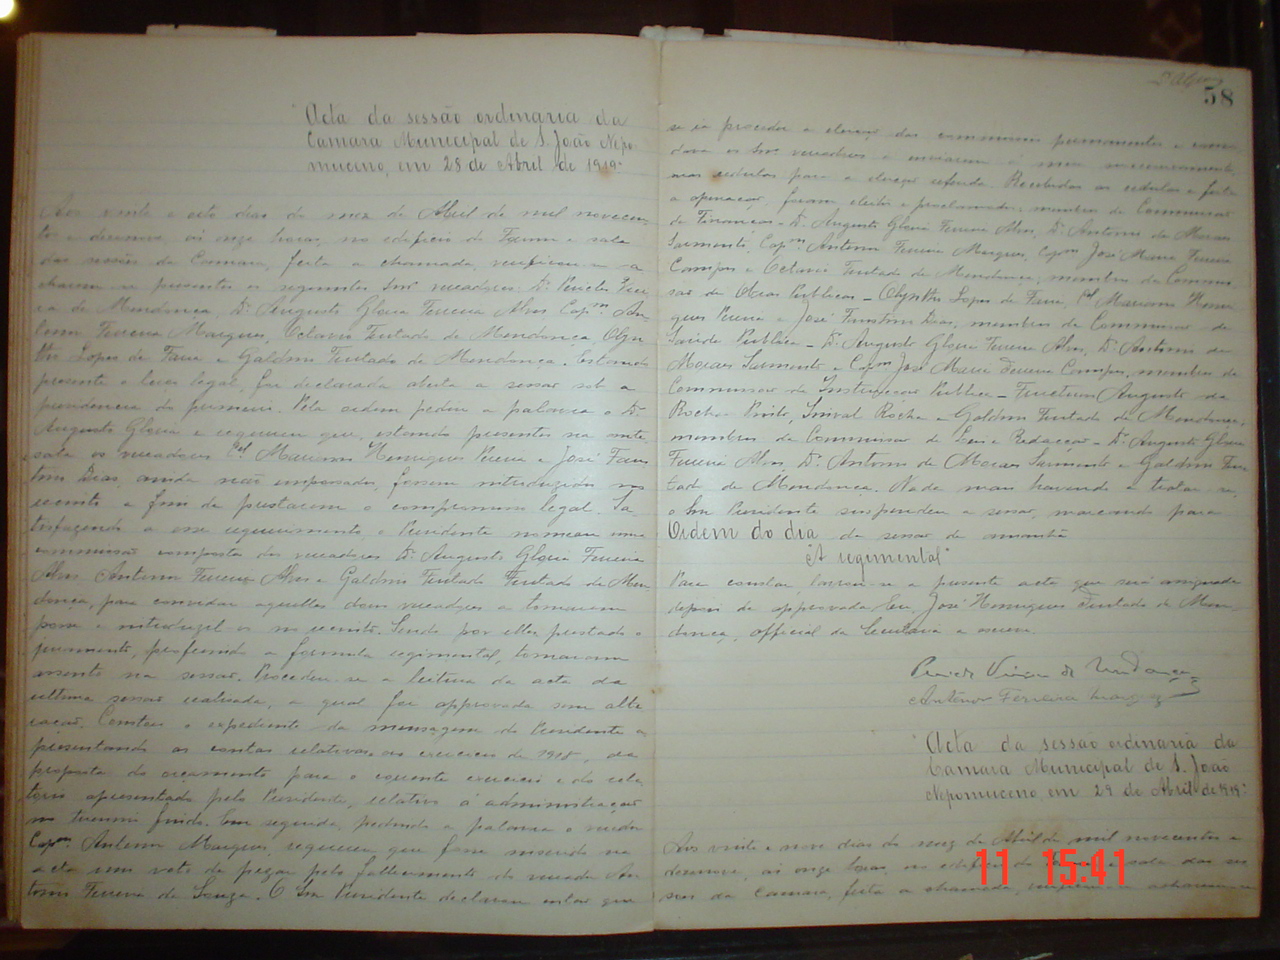 Acta da sessão ordinaria da
Camara Municipal de S. João Nepo-
muceno, em 28 de Abril de 1919.
Aos vinte e oito dias do mez de Abril de mil novecen-
tos e desenove, ás onze horas, no edificio do Forum e sala
das sessões da Camara, feita a chamada, verificou-se
acharem-se presentes os seguintes Snrs. vereadores Dr.
da Mendonça, Dr. Augusto Gloria Ferreira Alves Capm. An-
Ferreira Marques, Octavio Furtado de Mendonça, Olyn-
tho Lopes de Faria e Galdino Furtado de Mendonça. Estando
presente o local legal, foi declarada aberta a sessão sob a
presidencia do primeiro. Pela ordem pediu a palavra o Dr.
Augusto Gloria e requereu que, estando presentes na ante-
sala os vereadores Cel. Marianno Henriques Pereira e José Faus-
tino Dias, ainda não empossados, fossem introduzidos no
recinto a fim de prestarem o compromisso legal. Sa-
tisfazendo a esse requerimento o Presidente nomeou uma
commissão composta dos vereadores Dr. Augusto Gloria Ferreira
Alves Antenor Ferreira Alves e Galdino Furtado Furtado de Men-
donça, para convidar aquelles dous vereadores a tomarem
posse e introduzil-os no recinto. Sendo por elles prestado o
juramento, proferindo a formula regimental, tomaram
assento na sessão. Procedeu-se a leitura da acta da
ultima sessão realisada, a qual foi approvada sem alte-
ração. Constou o expediente da mensagem do Presidente a-
presentando as contas relativas ao exercicio de 1918, da
proposta do orçamento para o corrente exercicio e do rela-
torio apresentado pelo Presidente, relativo á administração
no triennio findo. Em seguida, pedindo a palavra o vereador
Capm. Antenor Marques, requereu que fosse inserido na
acta um voto de pezar pelo fallecimento do vereador An-
tonio Ferreira de Souza. O Snr. Presidente declarou estar que
58
se ia proceder a eleição das commissões permanentes e convi-
dava os Snrs. vereadores a enviarem á mesa
suas cedulas para a eleição referida. Recebidas as cedulas e feita
a apuração, foram eleitos e proclamados: membros da Commissão
de Finanças - Dr. Augusto Gloria Ferreira Alves, Dr. Antonio de Moraes
Sarmento, Capm. Antenor Ferreira Marques, Capm. José Maria Ferreira
Campos e Octavio Furtado de Mendonça, membros da Commis-
são de Obras Publicas - Olyntho Lopes de Faria, Cel. Marianno Henri-
ques Pereira e José Faustino Dias, membros da Commissão de
Saúde Publica - Dr. Augusto Gloria Ferreira Alves, Dr. Antonio de
Moraes Sarmento e Capm. José Maria Ferreira Campos, membros da
Commissão de Instrucção Publica - Augusto da
Rocha Rocha e Galdino Furtado de Mendonça,
membros da Commissão de Leis e Redacção - Dr. Augusto Gloria
Ferreira Alves, Dr. Antonio de Moraes Sarmento e Galdino Fur-
tado de Mendonça. Nada mais havendo a tratar-se,
o Snr. Presidente suspendeu a sessão, marcando para
Ordem do dia da sessão de amanhã
"A regimental"
Para constar, lavrou-se a presente acta que será assignada
depois de approvada. Eu, José Henriques Furtado de Men-
donça, official da Secretaria a escrevi.
Antenor Ferreira Marques
Acta da sessão ordinaria da
Camara Municipal de S. João
Nepomuceno, em 29 de Abril de 1919.
Aos vinte e nove dias do mez de Abril de mil novecentos e
desenove, ás onze horas, no edificio do sala das ses-
sões da Camara, feita a chamada,
11 15:41